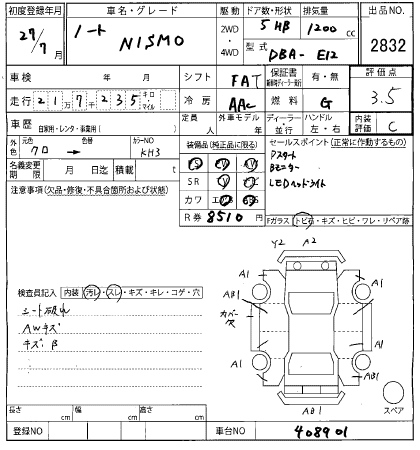 初度登録年月 車名・グレード 駆動 ドア数・形状 排気量 出品NO.
27/7月 ノート NISMO 2WD・4WD 5 HB 1200 cc 2832
型式 DBA- E12
車検 年 月 シフト FAT 保証書 有・無 評価点
走行 217235 キロ・マイル 冷房 AAC 燃料 G 3.5
車歴 自家用・レンタ・事業用( ) 定員 人 外車モデル 年 ディーラー・並行 ハンドル 左・右 内装評価 C
外色 元色 クロ → 色替 カラーNO KH3
装備品(純正品に限る) セールスポイント(正常に作動するもの)
名義変更期限 月 日迄 積載 t
Pスタート
Bモニター
LEDヘッドライト
SR
カワ
R券 8510 円
注意事項(欠品・修復・不具合箇所および状態)
Fガラス トビ石・キズ・ヒビ・ワレ・リペア跡
Y2 A2
A1 A1
AB1 A1
カバー欠
A1 A1
AB1
AB1
スペア
検査員記入 内装 汚レ・スレ・キズ・キレ・コゲ・穴
シート破れ
AWキズ
キズ.β
長さ cm 幅 cm 高さ cm
登録NO 車台NO 408901